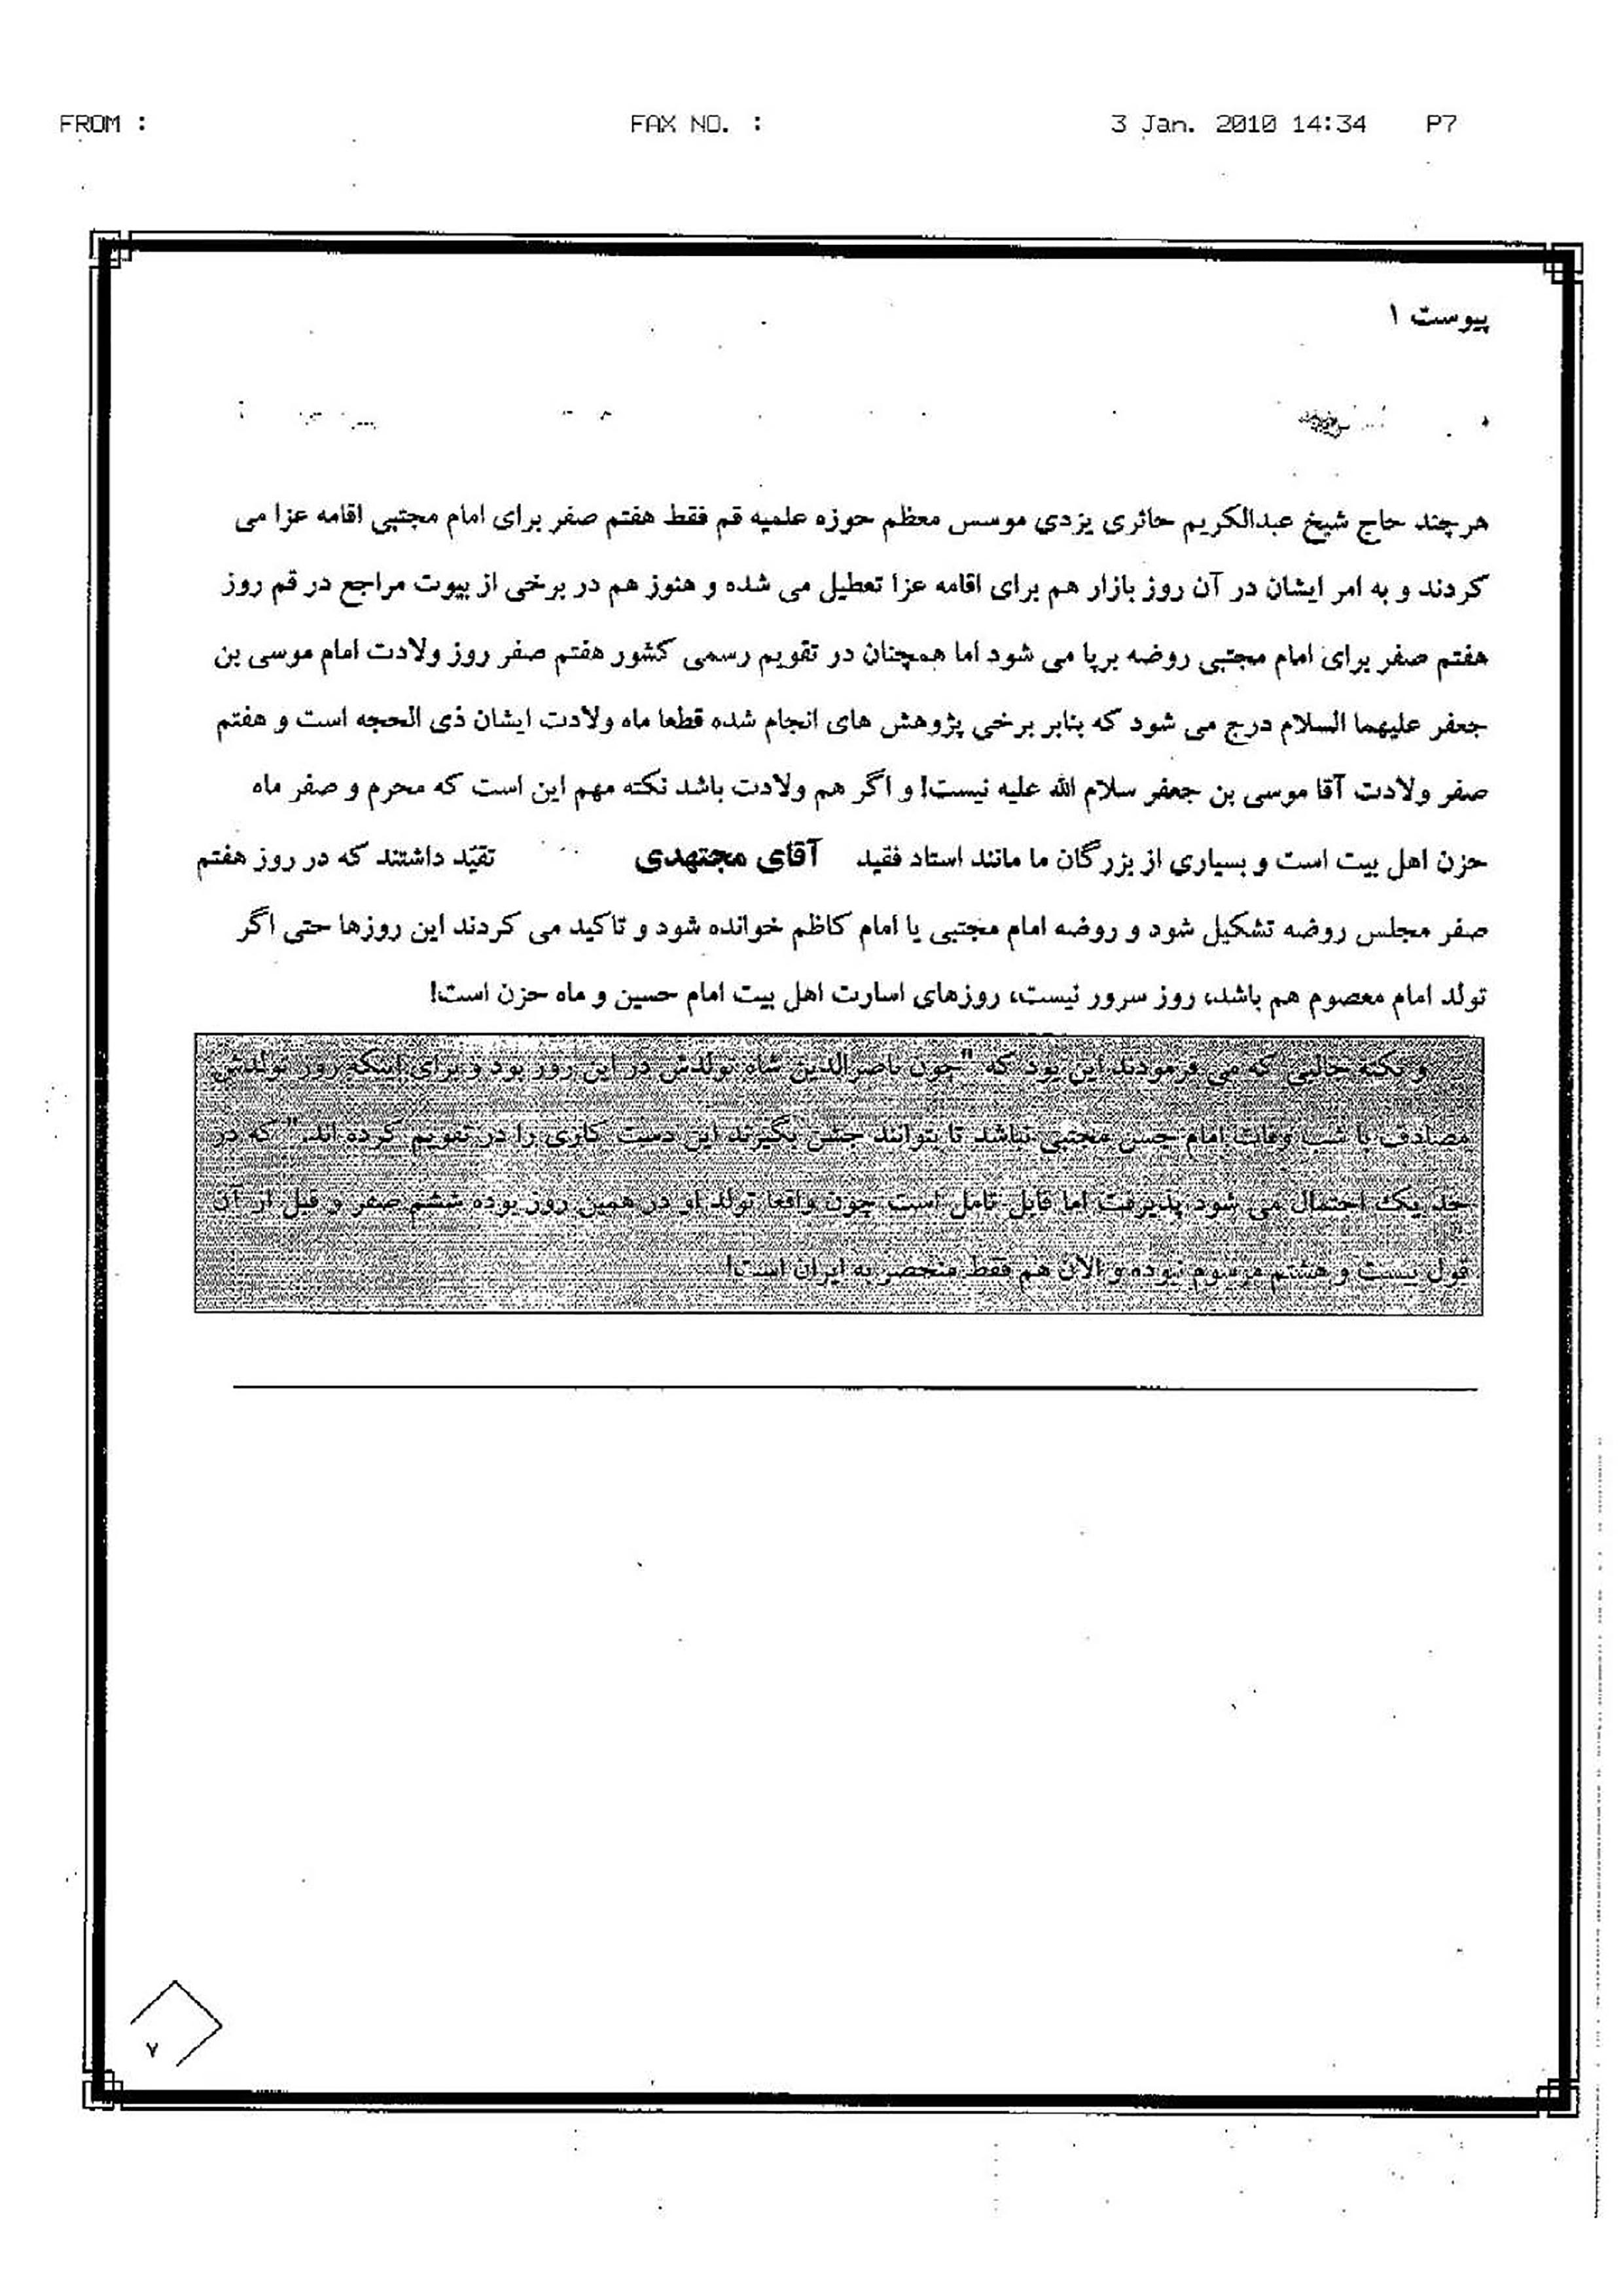 FROM : FAX NO. : 3 Jan. 2010 14:34 P7
پیوست ۱
هرچند حاج شیخ عبدالکریم حائری یزدی موسس معظم حوزه علمیه قم فقط هفتم صفر برای امام مجتبی اقامه عزا می
کردند و به امر ایشان در آن روز بازار هم برای اقامه عزا تعطیل می شده و هنوز هم در برخی از بیوت مراجع در قم روز
هفتم صفر برای امام مجتبی روضه برپا می شود اما همچنان در تقویم رسمی کشور هفتم صفر روز ولادت امام موسی بن
جعفر علیهما السلام درج می شود که بنابر برخی پژوهش های انجام شده قطعا ماه ولادت ایشان ذی الحجه است و هفتم
صفر ولادت آقا موسی بن جعفر سلام الله علیه نیست! و اگر هم ولادت باشد نکته مهم این است که محرم و صفر ماه
حزن اهل بیت است و بسیاری از بزرگان ما مانند استاد فقید آقای مجتهدی تقیّد داشتند که در روز هفتم
صفر مجلس روضه تشکیل شود و روضه امام مجتبی یا امام کاظم خوانده شود و تاکید می کردند این روزها حتی اگر
تولد امام معصوم هم باشد، روز سرور نیست، روزهای اسارت اهل بیت امام حسین و ماه حزن است!
و نکته جالبی که می فرمودند این بود که "چون ناصرالدین شاه تولدش در این روز بود و برای اینکه روز تولدش
مصادف با شب وفات امام حسن مجتبی نباشد تا بتوانند جشن بگیرند این دست کاری را در تقویم کرده اند." که در
حد یک احتمال می شود پذیرفت اما قابل تامل است چون واقعا تولد او در همین روز بوده ششم صفر و قبل از آن
قول بیست و هشتم مرسوم نبوده و الان هم فقط منحصر به ایران است!
۷